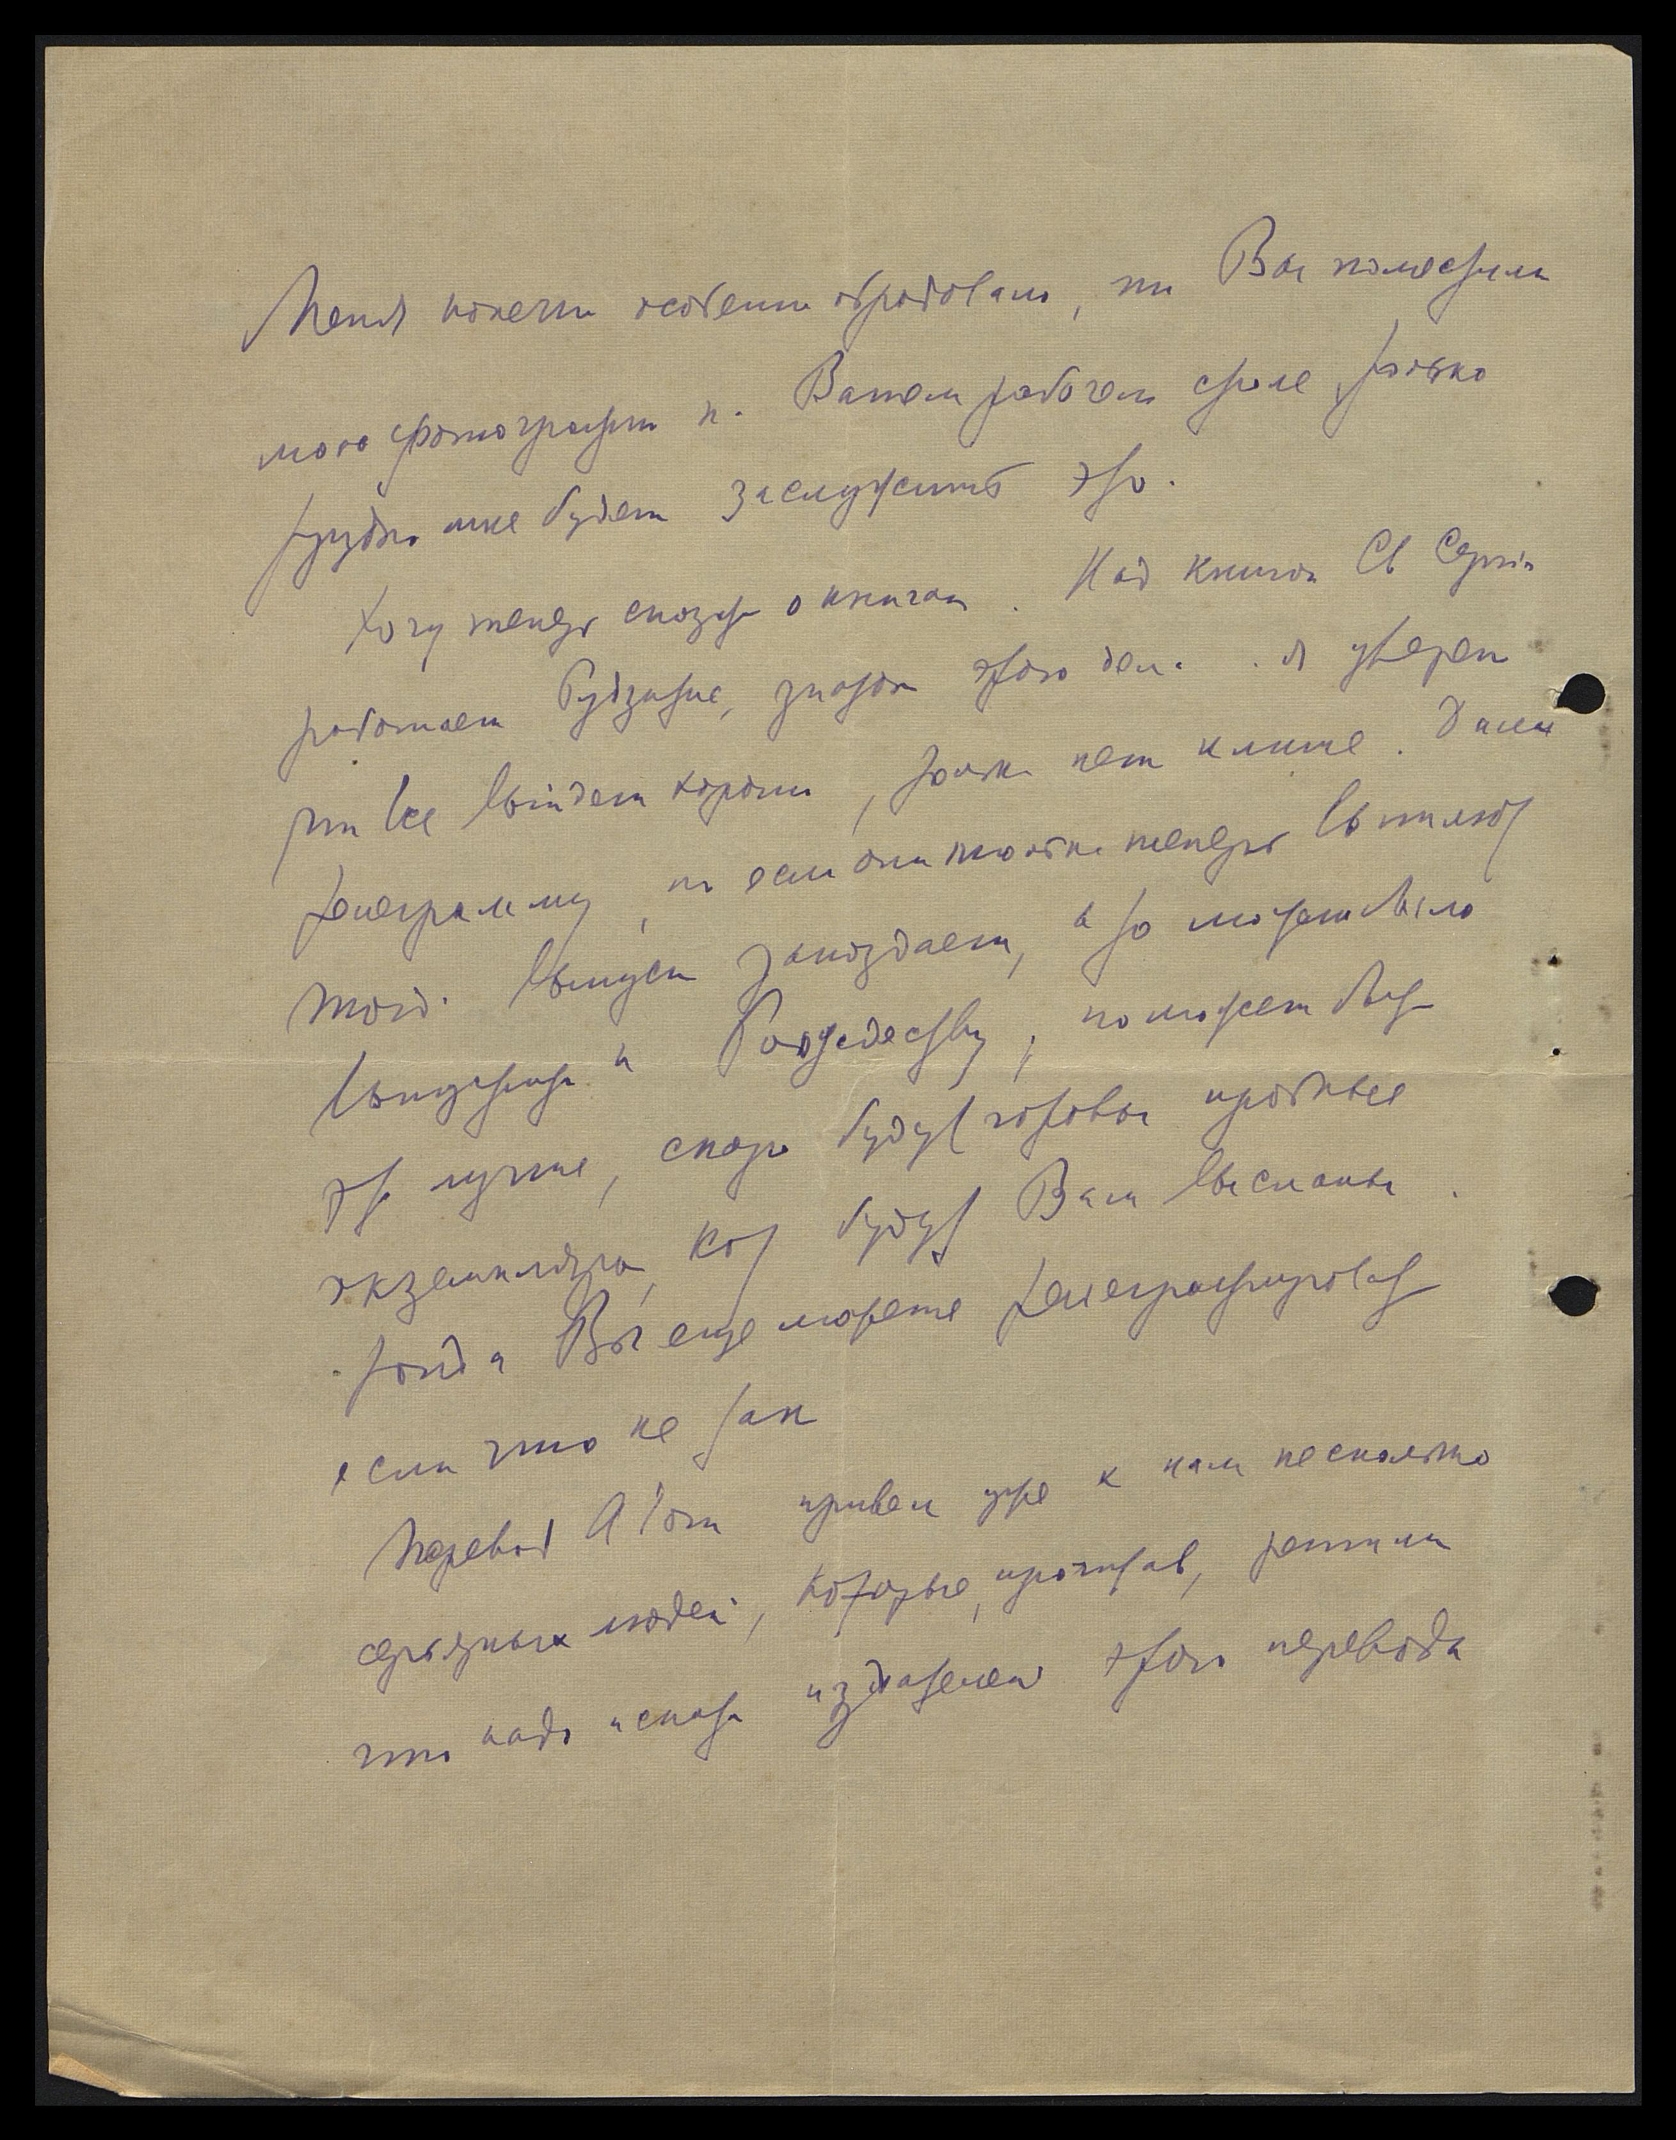 Меня конечно особенно обрадовало, что Вы поместили
мою фотографию на Вашем рабочем столе, только
трудно мне будет заслужить это.
Хочу теперь сказать о книгах. Над книгой Св Сергія
работает Рудзитис, знаток этого дела. Я уверен
что все выйдет хорошо, только нет клише. Дали
телеграмму, но если они только теперь вышлют
тогда выпуск запоздает, а то может было
выпустить к Рождеству, но может быть
это лучше, скоро будут готовы пробные
экземпляры, кот будут Вам высланы.
тогда Вы еще можете телеграфировать
если что не так
Перевод А Іоги привел уже к нам несколько
серьезных людей, которые, прочитав, решили
что надо искать издателей этого перевода